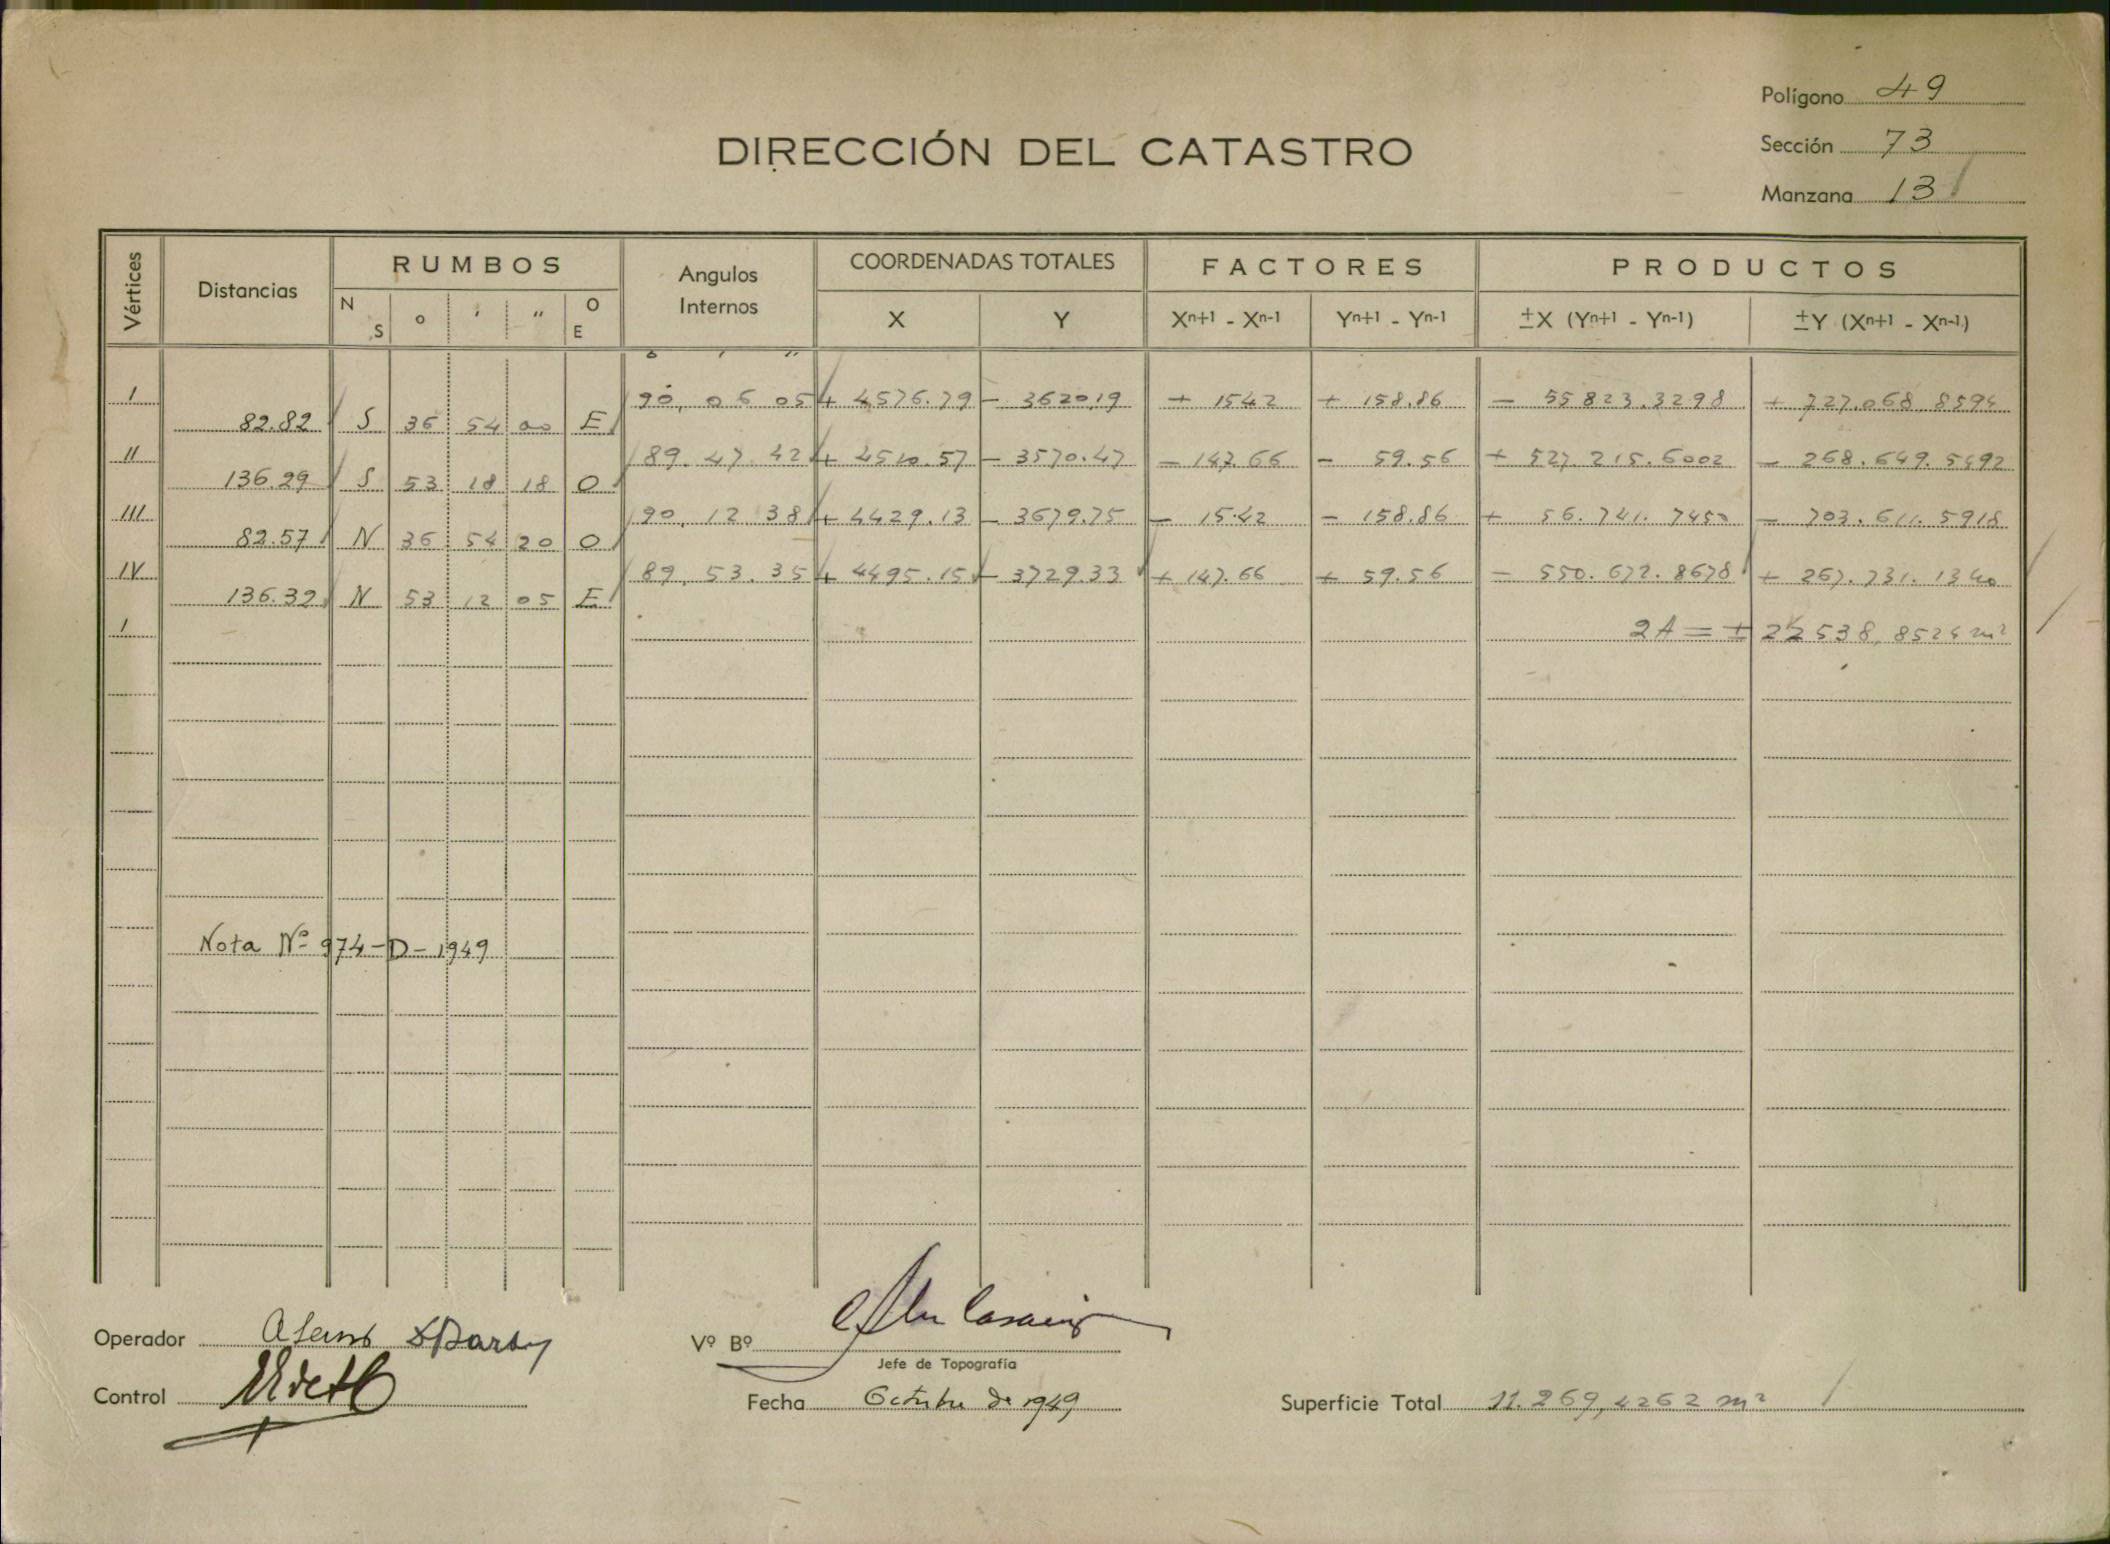 Polígono 49
DIRECCIÓN DEL CATASTRO
Sección 73
Manzana 13
Vértices Distancias RUMBOS Angulos Internos COORDENADAS TOTALES FACTORES PRODUCTOS
N S o ' " O E X Y Xn+1 - Xn-1 Yn+1 - Yn-1 ±X (Yn+1 - Yn-1) ±Y (Xn+1 - Xn-1)
o ' "
I 90. 06 05 + 4576.79 - 3620.19 + 15.42 + 158.86 - 55823.3298 + 727.068.8594
82.82 S 36 54 00 E
II 89. 47. 42 + 4510.57 - 3570.47 - 147.66 - 59.56 + 527.215.6002 - 268.649.5492
136.29 S 53 18 18 O
III 90. 12 38 + 4429.13 - 3679.75 - 15.42 - 158.86 + 56.741.7450 - 703.611.5918
82.57 N 36 54 20 O
IV 89. 53. 35 + 4495.15 - 3729.33 + 147.66 + 59.56 - 550.672.8678 + 267.731.1340
136.32 N 53 12 05 E
I 2A = ± 22538,8524 m²
Nota Nº 974-D-1949
Operador
Vº Bº
Jefe de Topografía
Control
Fecha Octubre de 1949
Superficie Total 11.269,4262 m²